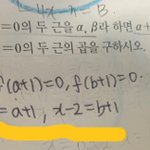 =0의 두 근을 α, β라 하면 α+
=0의 두 근의 곱을 구하시오.
f(a+1)=0, f(b+1)=0.
= a+1, x-2=b+1